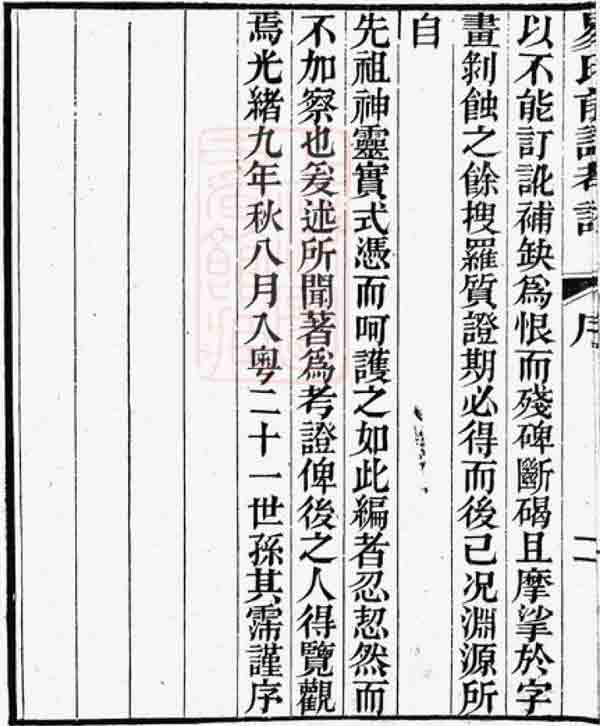 以不能訂訛補缺爲恨而殘碑斷碣且摩挲於字
畫剝蝕之餘搜羅質證期必得而後已况淵源所
自
先祖神靈實式憑而呵護之如此編者忍恝然而
不加察也爰述所聞著爲考證俾後之人得覽觀
焉光緒九年秋八月入粤二十一世孫其霈謹序